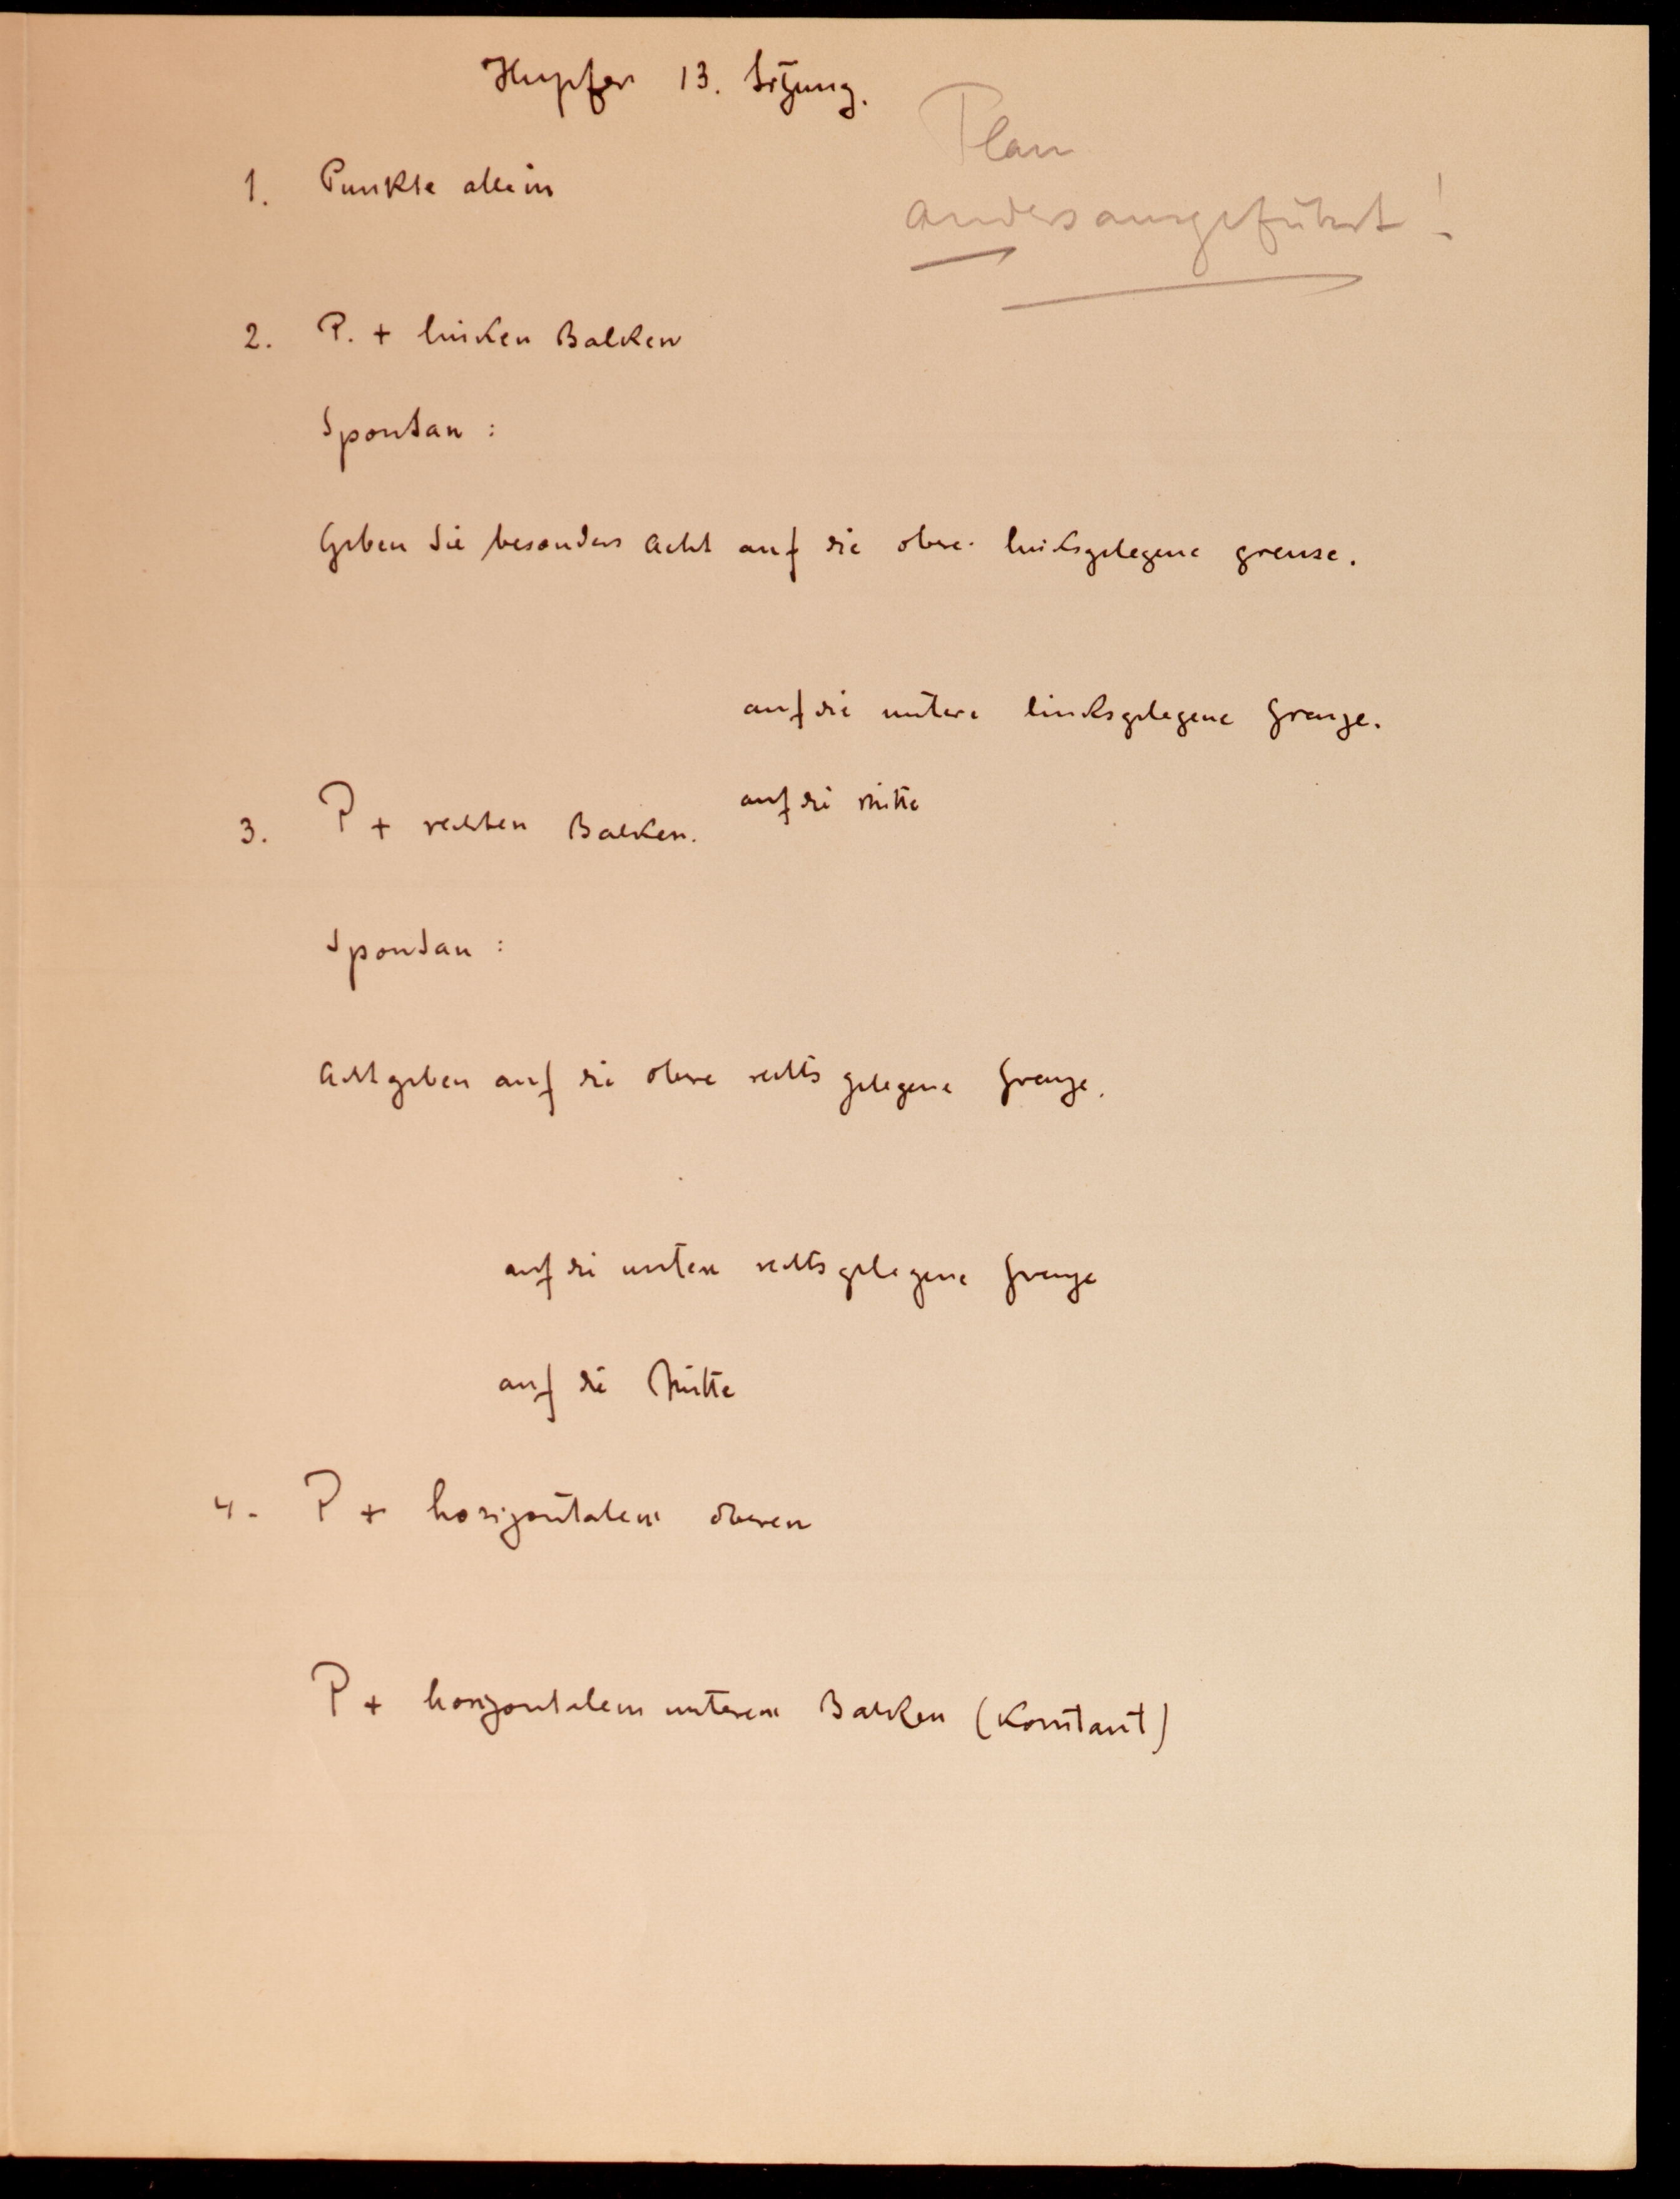 Hupfer 13. Sitzung.
Plan
anders ausgeführt!
1. Punkte allein
2. P. + linken Balken
Spontan :
Geben Sie besonders Acht auf die obere linksgelegene grenze.
auf die untere linksgelegene Grenze.
auf die Mitte
3. P + rechten Balken.
Spontan :
Acht geben auf die obere rechts gelegene Grenze.
auf die untere rechts gelegene Grenze
auf die Mitte
4. P + horizontalem oberen
P + horizontalem unteren Balken (Konstant)